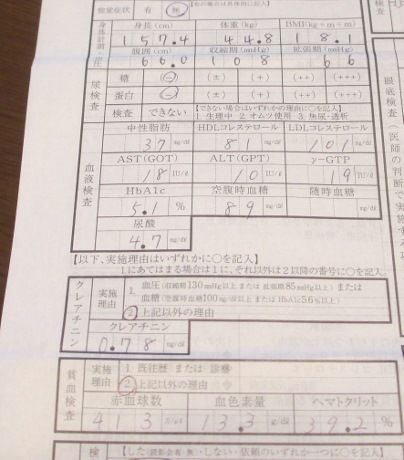 自覚症状 有 無
身長(cm) 体重(kg) BMI(kg÷m÷m)
157.4 44.8 18.1
腹囲(cm) 収縮期(mmHg) 拡張期(mmHg)
66.0 108 66
尿検査
糖 (-) (±) (+) (++) (+++)
蛋白 (-) (±) (+) (++) (+++)
検査 できない 【できない場合はいずれかの理由に○を記入】
1.生理中 2.オムツ使用 3.無尿・透析
血液検査
中性脂肪 HDLコレステロール LDLコレステロール
37 mg/dl 81 mg/dl 101 mg/dl
AST(GOT) ALT(GPT) γ-GTP
18 IU/l 10 IU/l 19 IU/l
HbA1c 空腹時血糖 随時血糖
5.1 % 89 mg/dl mg/dl
尿酸
4.7 mg/dl
【以下、実施理由はいずれかに○を記入】
1にあてはまる場合は1に、それ以外は2以降の番号に○を記入
クレアチニン
実施理由 1. 血圧(収縮期130mmHg以上または拡張期85mmHg以上)または
血糖(空腹時血糖100mg/dl以上またはHbA1c5.6%以上)
2 上記以外の理由
クレアチニン
0.78 mg/dl
貧血検査
実施理由 1. 既往歴または診察
2 上記以外の理由
赤血球数 血色素量 ヘマトクリット
413 万/mm³ 13.3 g/dl 39.2 %
眼底検査(医師の判断で実施